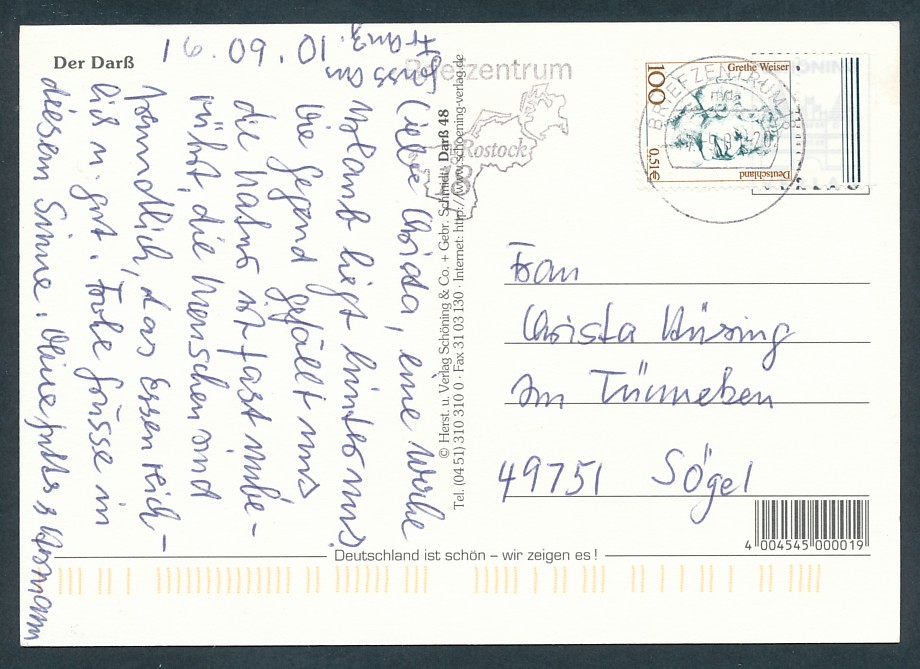 Der Darß
10.09.01
Liebe Christa, eine Woche
Urlaub liegt hinter uns
die Gegend gefällt uns
die Natur ist fast unbe-
rührt, die Menschen sind
freundlich, das Essen reich-
lich u. gut. Frohe Grüsse in
diesem Sinne.
© Herst. u. Verlag Schöning & Co. + Gebr. Schmidt Darß 48
Tel. (04 51) 310 310 0 · Fax 31 03 130 · Internet: http://www.schoening-verlag.de
Briefzentrum
Rostock
18
BRIEFZENTRUM 18
Grethe Weiser
100
0,51€
Deutschland
Frau
Christa Hüsing
Am Tünneben
49751 Sögel
4 004545 000019
Deutschland ist schön – wir zeigen es !